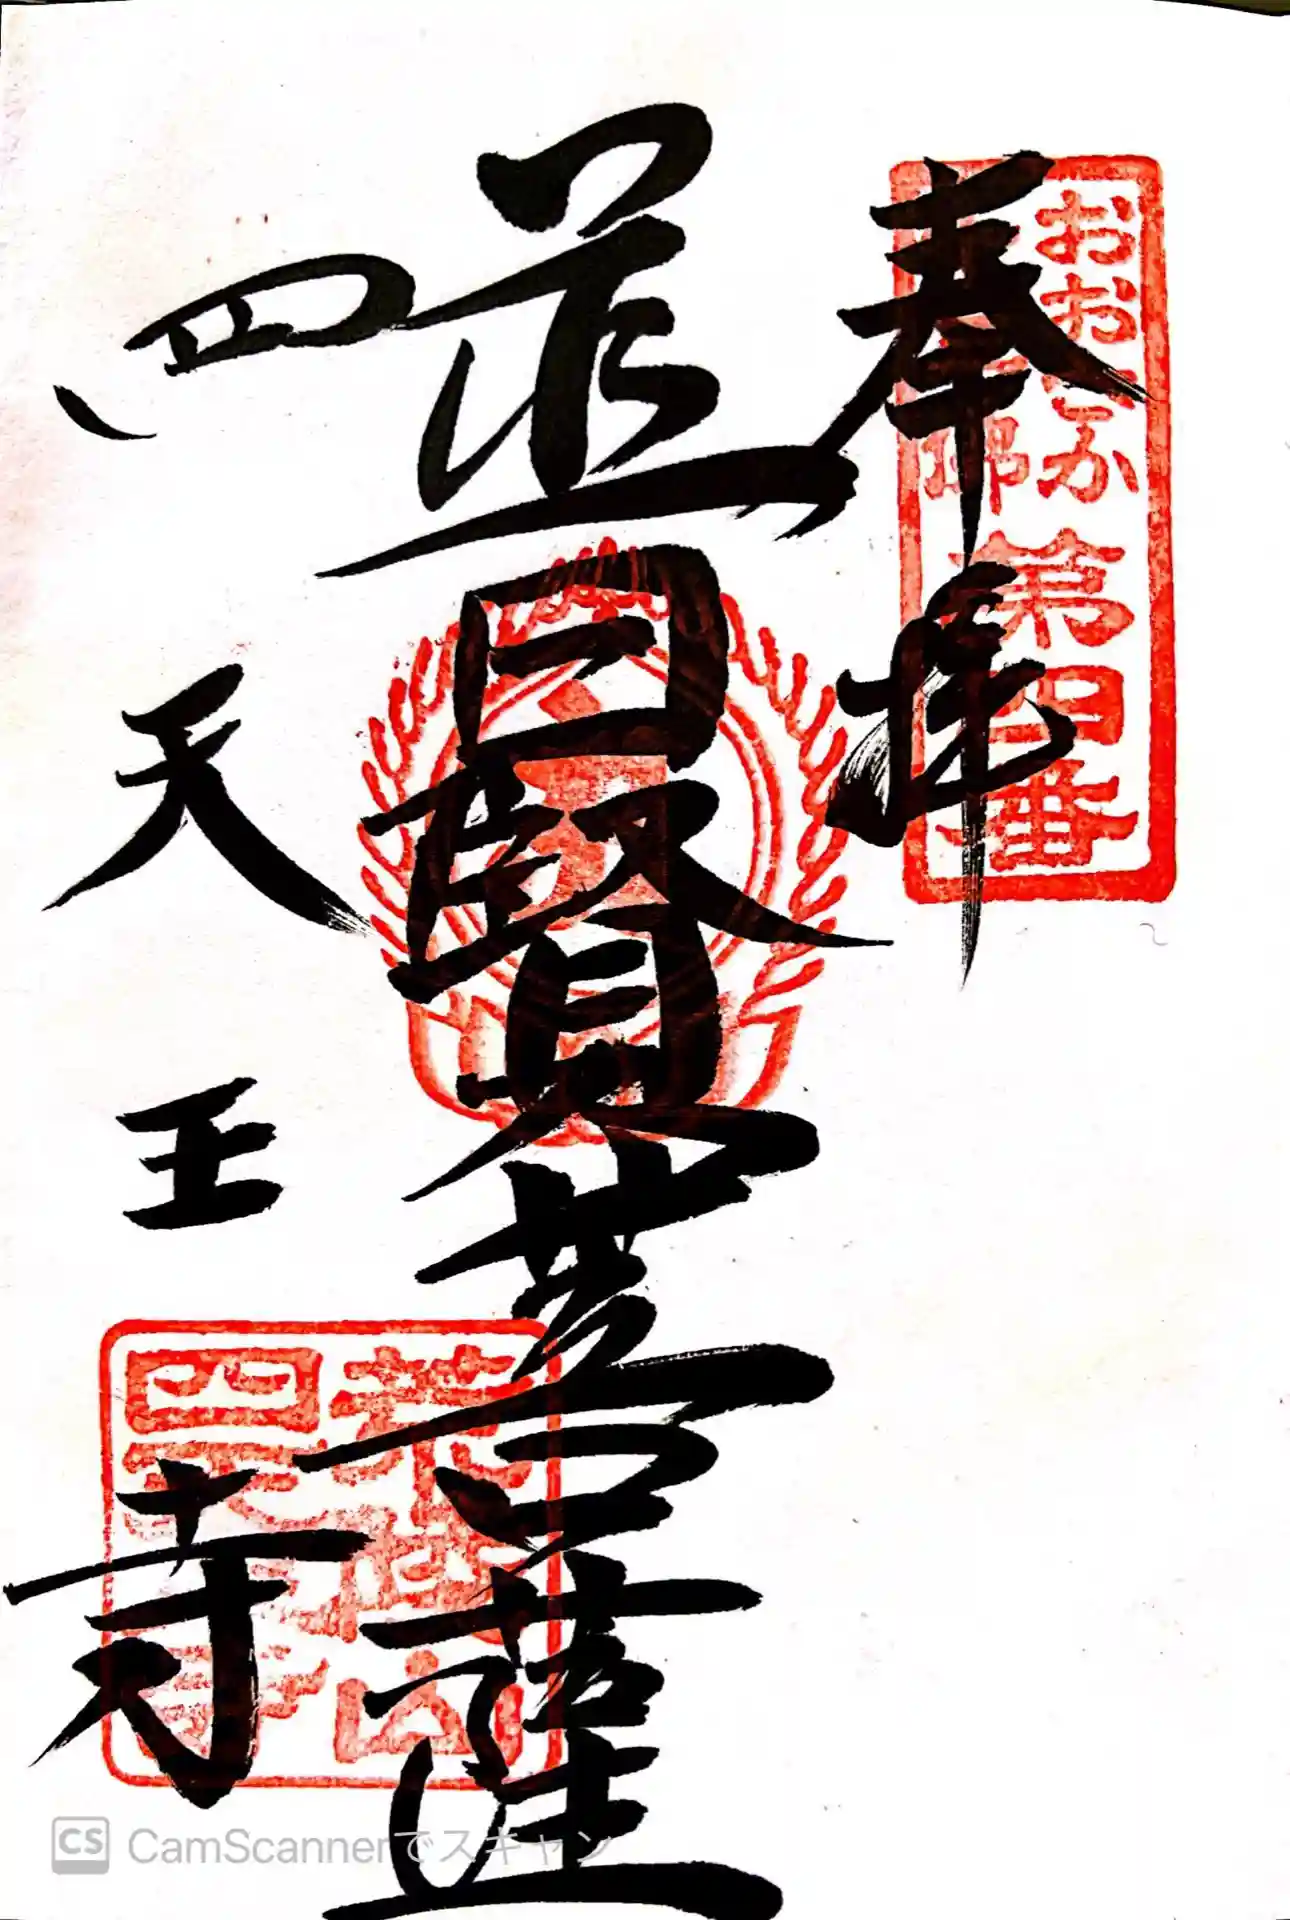 奉拝
おおさか
第四番
普賢菩薩
四天王寺
荒陵山
四天王寺
CS CamScannerでスキャン